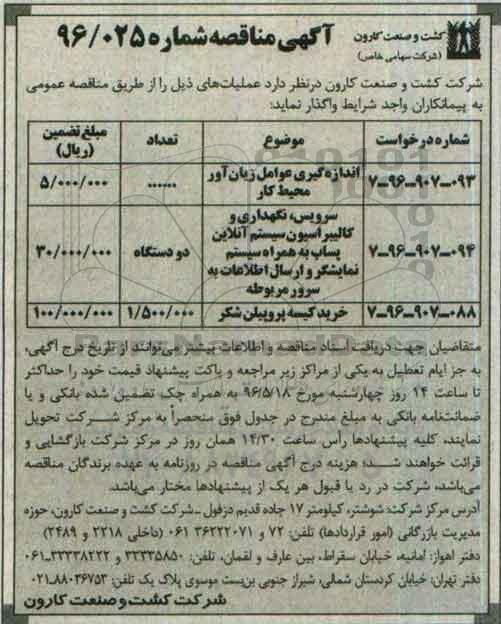 کشت و صنعت کارون
(شرکت سهامی خاص)
آگهی مناقصه شماره ۹۶/۰۲۵
شرکت کشت و صنعت کارون درنظر دارد عملیات‌های ذیل را از طریق مناقصه عمومی
به پیمانکاران واجد شرایط واگذار نماید:
شماره درخواست موضوع تعداد مبلغ تضمین (ریال)
۷-۹۶-۹۰۷-۰۹۳ اندازه‌گیری عوامل زیان‌آور محیط کار ...... ۵/۰۰۰/۰۰۰
۷-۹۶-۹۰۷-۰۹۴ سرویس، نگهداری و کالیبراسیون سیستم آنلاین پساب به همراه سیستم نمایشگر و ارسال اطلاعات به سرور مربوطه دو دستگاه ۳۰/۰۰۰/۰۰۰
۷-۹۶-۹۰۷-۰۸۸ خرید کیسه پروپیلن شکر ۱/۵۰۰/۰۰۰ ۱۰۰/۰۰۰/۰۰۰
متقاضیان جهت دریافت اسناد مناقصه و اطلاعات بیشتر می‌توانند از تاریخ درج آگهی،
به جز ایام تعطیل به یکی از مراکز زیر مراجعه و پاکت پیشنهاد قیمت خود را حداکثر
تا ساعت ۱۴ روز چهارشنبه مورخ ۹۶/۵/۱۸ به همراه چک تضمین شده بانکی و یا
ضمانتنامه بانکی به مبلغ مندرج در جدول فوق منحصراً به مرکز شرکت تحویل
نمایند، کلیه پیشنهادها رأس ساعت ۱۴/۳۰ همان روز در مرکز شرکت بازگشایی و
قرائت خواهند شد؛ هزینه درج آگهی مناقصه در روزنامه به عهده برندگان مناقصه
می‌باشد، شرکت در رد یا قبول هر یک از پیشنهادها مختار می‌باشد.
آدرس مرکز شرکت: شوشتر، کیلومتر ۱۷ جاده قدیم دزفول - شرکت کشت و صنعت کارون، حوزه
مدیریت بازرگانی (امور قراردادها) تلفن: ۷۲ و ۳۶۲۲۲۰۷۱ ۰۶۱ (داخلی ۲۲۱۸ و ۲۴۸۹)
دفتر اهواز: امانیه، خیابان سقراط، بین عارف و لقمان، تلفن: ۳۳۳۳۵۸۵۰ و ۳۳۳۳۸۲۲۲-۰۶۱
دفتر تهران: خیابان کردستان شمالی، شیراز جنوبی بن‌بست موسوی پلاک یک تلفن: ۸۸۰۴۶۷۵۳-۰۲۱
شرکت کشت و صنعت کارون